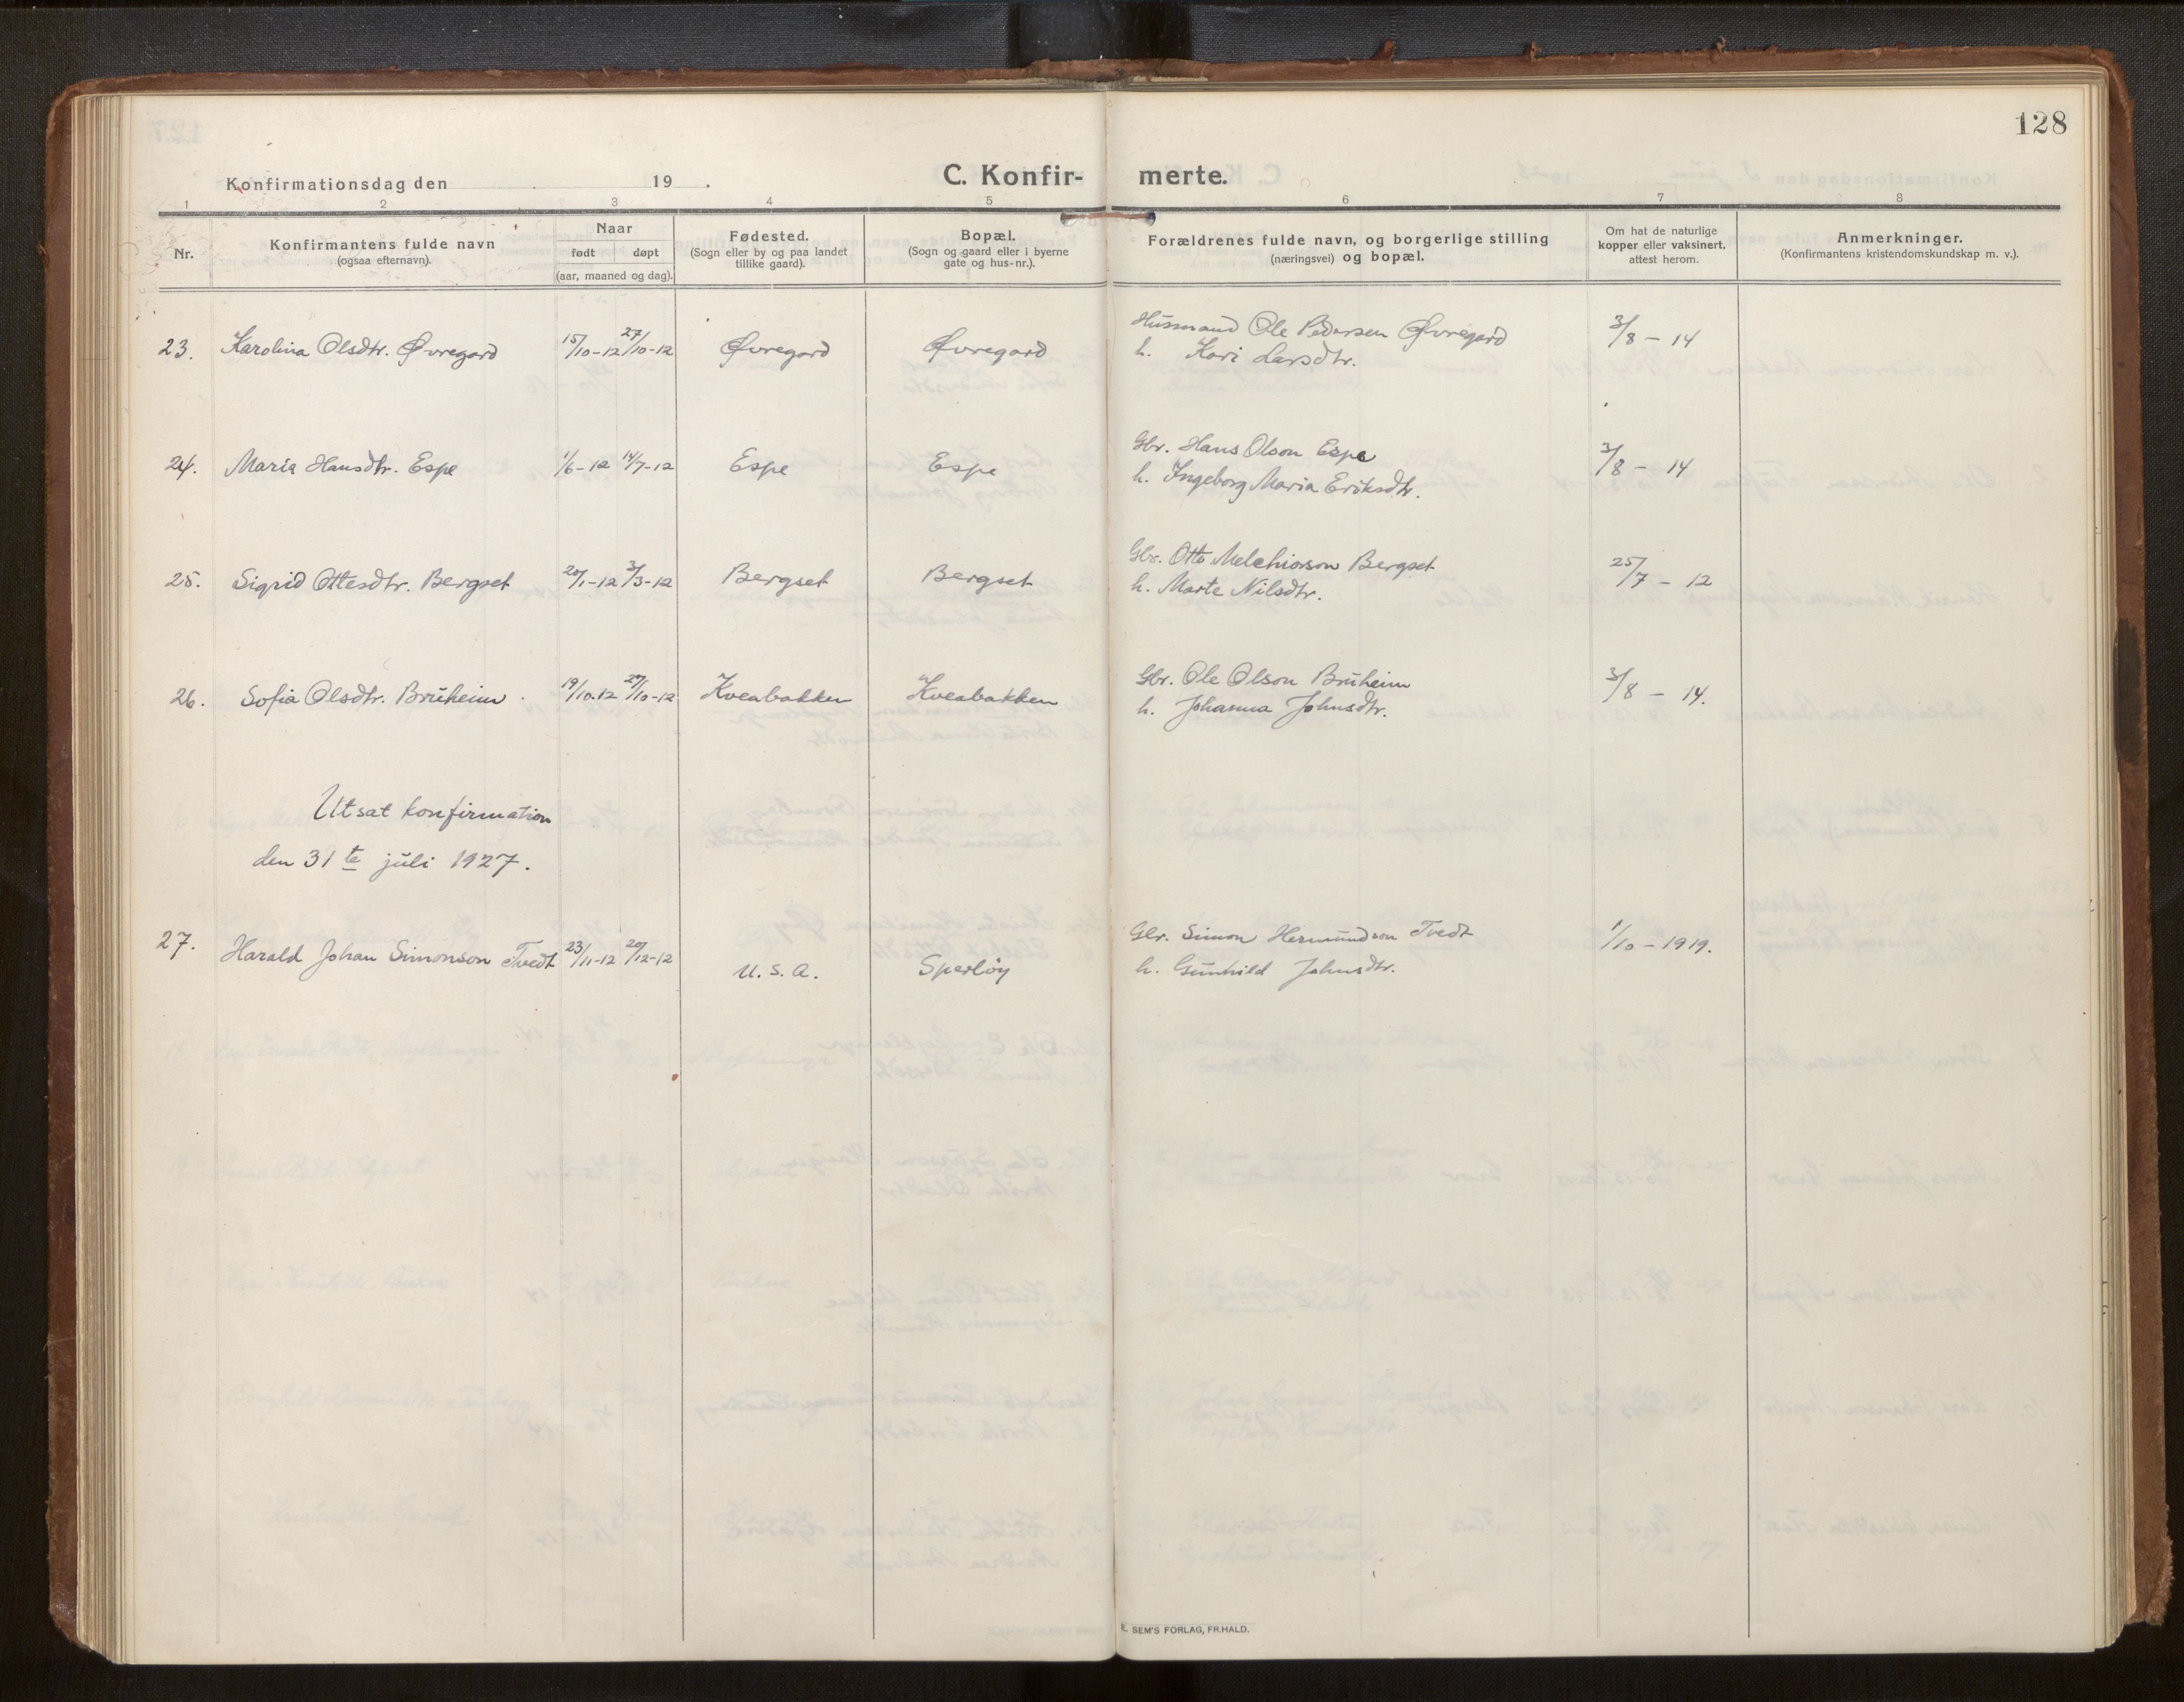 128
Konfirmationsdag den 19 .
C. Konfir- merte.
1 2 3 4 5 6 7 8
Nr.
Konfirmantens fulde navn
(ogsaa efternavn).
Naar
født døpt
(aar, maaned og dag).
Fødested.
(Sogn eller by og paa landet
tillike gaard).
Bopæl.
(Sogn og gaard eller i byerne
gate og hus-nr.).
Forældrenes fulde navn, og borgerlige stilling
(næringsvei) og bopæl.
Om hat de naturlige
kopper eller vaksinert,
attest herom.
Anmerkninger.
(Konfirmantens kristendomskundskap m. v.).
23. Karolina Olsdtr. Øvregard 15/10-12 27/10-12 Øvregard Øvregard Husmand Ole Pedersen Øvregard 3/8 - 14
h. Kari Larsdtr.
24. Maria Hansdtr. Espe 1/6-12 14/7-12 Espe Espe Gbr. Hans Olson Espe 3/8 - 14
h. Ingeborg Maria Eriksdtr.
25. Sigrid Ottesdtr. Bergset 20/1-12 3/3-12 Bergset Bergset Gbr. Otto Melchiorson Bergset 25/7 - 12
h. Marte Nilsdtr.
26. Sofia Olsdtr. Bruheim 19/10.12 27/10-12 Kveabakken Kveabakken Gbr. Ole Olson Bruheim 3/8 - 14.
h. Johanna Johnsdtr.
Utsat konfirmation
den 31te juli 1927.
27. Harald Johan Simonson Tvedt 23/11-12 20/12-12 U.S.A. Sperløy Gbr. Simon Hermundson Tvedt 1/10 - 1919.
h. Gunhild Johnsdtr.
E. SEM'S FORLAG, FR.HALD.